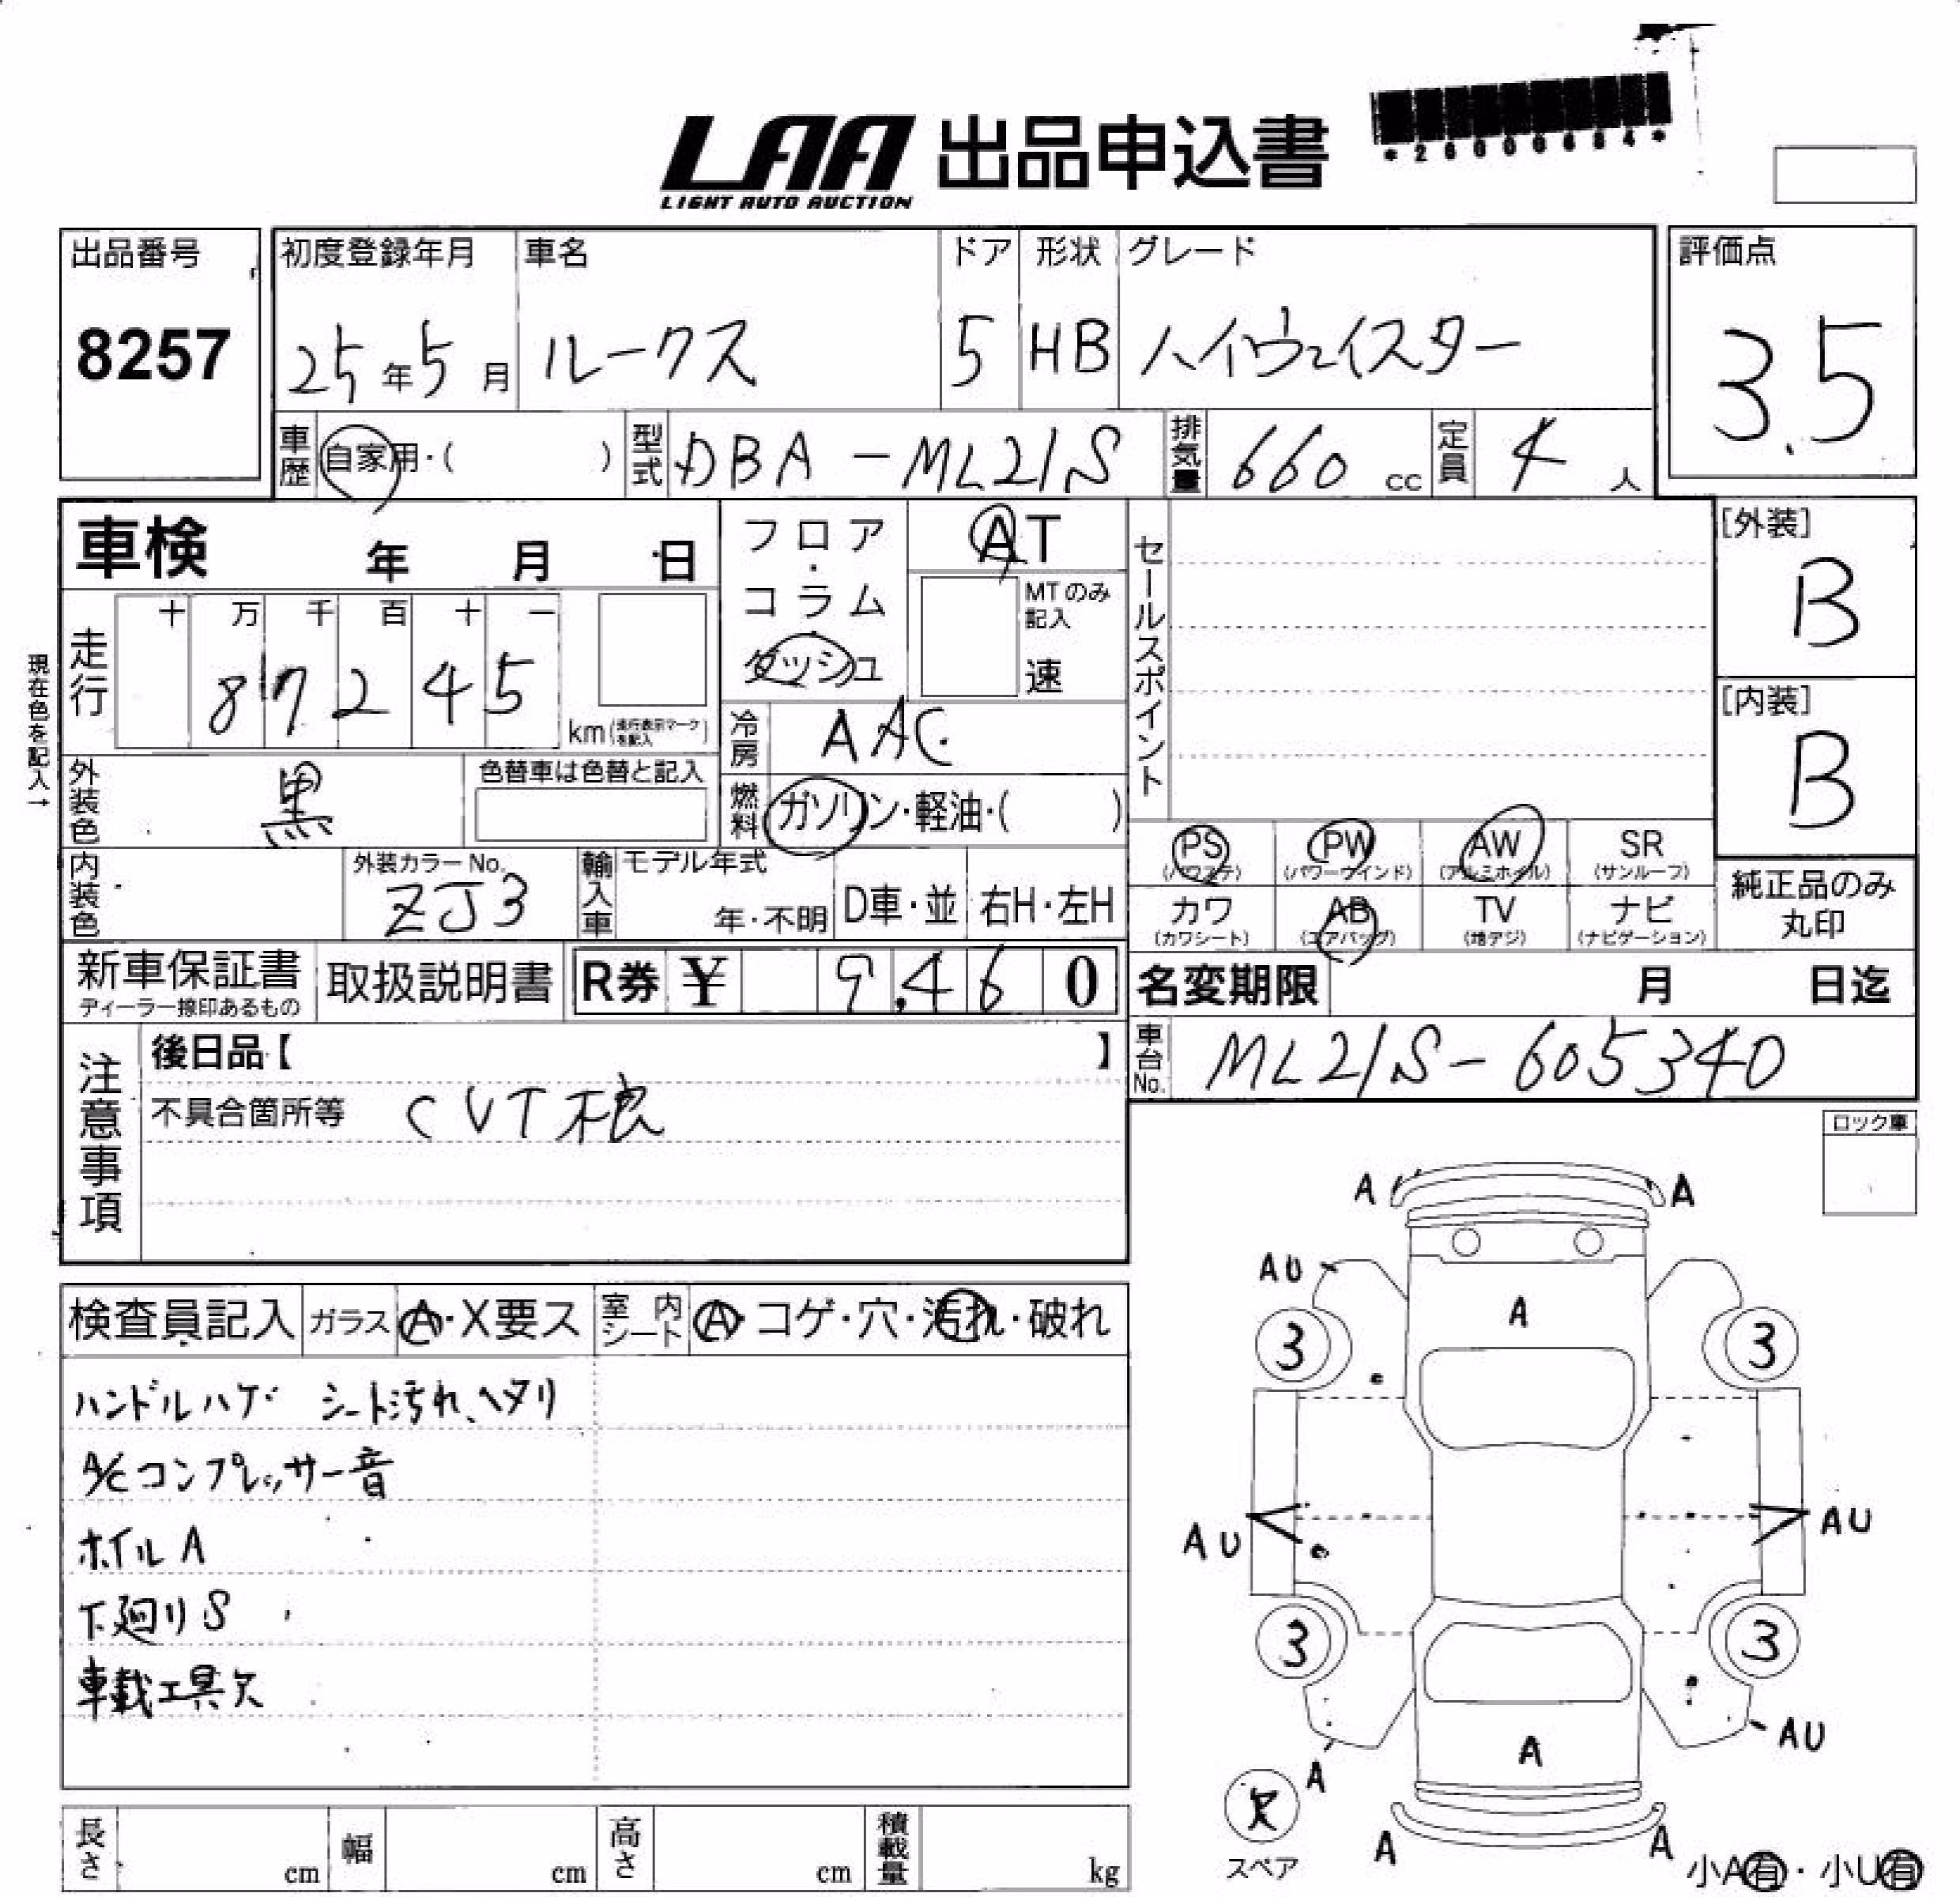 LAA 出品申込書
LIGHT AUTO AUCTION
*26000684*
出品番号
8257
初度登録年月
25年5月
車名
ルークス
ドア
5
形状
HB
グレード
ハイウェイスター
評価点
3.5
車歴 自家用・( )
型式 DBA-ML21S
排気量 660 cc
定員 4 人
車検 年 月 日
フロア・コラム・ダッシュ
AT
MTのみ記入
速
セールスポイント
[外装]
B
[内装]
B
現在色を記入→
走行
十 万 千 百 十 一
87245
km(走行表示マークを記入)
冷房 AAC
燃料 ガソリン・軽油・( )
外装色 黒
色替車は色替と記入
内装色
外装カラーNo.
ZJ3
輸入車
モデル年式
年・不明
D車・並
右H・左H
PS
(パワステ)
PW
(パワーウインド)
AW
(アルミホイル)
SR
(サンルーフ)
カワ
(カワシート)
AB
(エアバッグ)
TV
(地デジ)
ナビ
(ナビゲーション)
純正品のみ
丸印
新車保証書
ディーラー捺印あるもの
取扱説明書
R券 ¥ 9,460
名変期限 月 日迄
車台No. ML21S-605340
注意事項
後日品【 】
不具合箇所等 CVT不良
ロック車
検査員記入
ガラス A・X要ス
室内シート A・コゲ・穴・汚れ・破れ
ハンドルハゲ シート汚れ、ヘタリ
A/Cコンプレッサー音
ホイルA
下廻りS
車載工具欠
A A
AU
A
3 3
AU AU
3 3
AU
A
A
欠
スペア
A A
小A有・小U有
長さ cm
幅 cm
高さ cm
積載量 kg